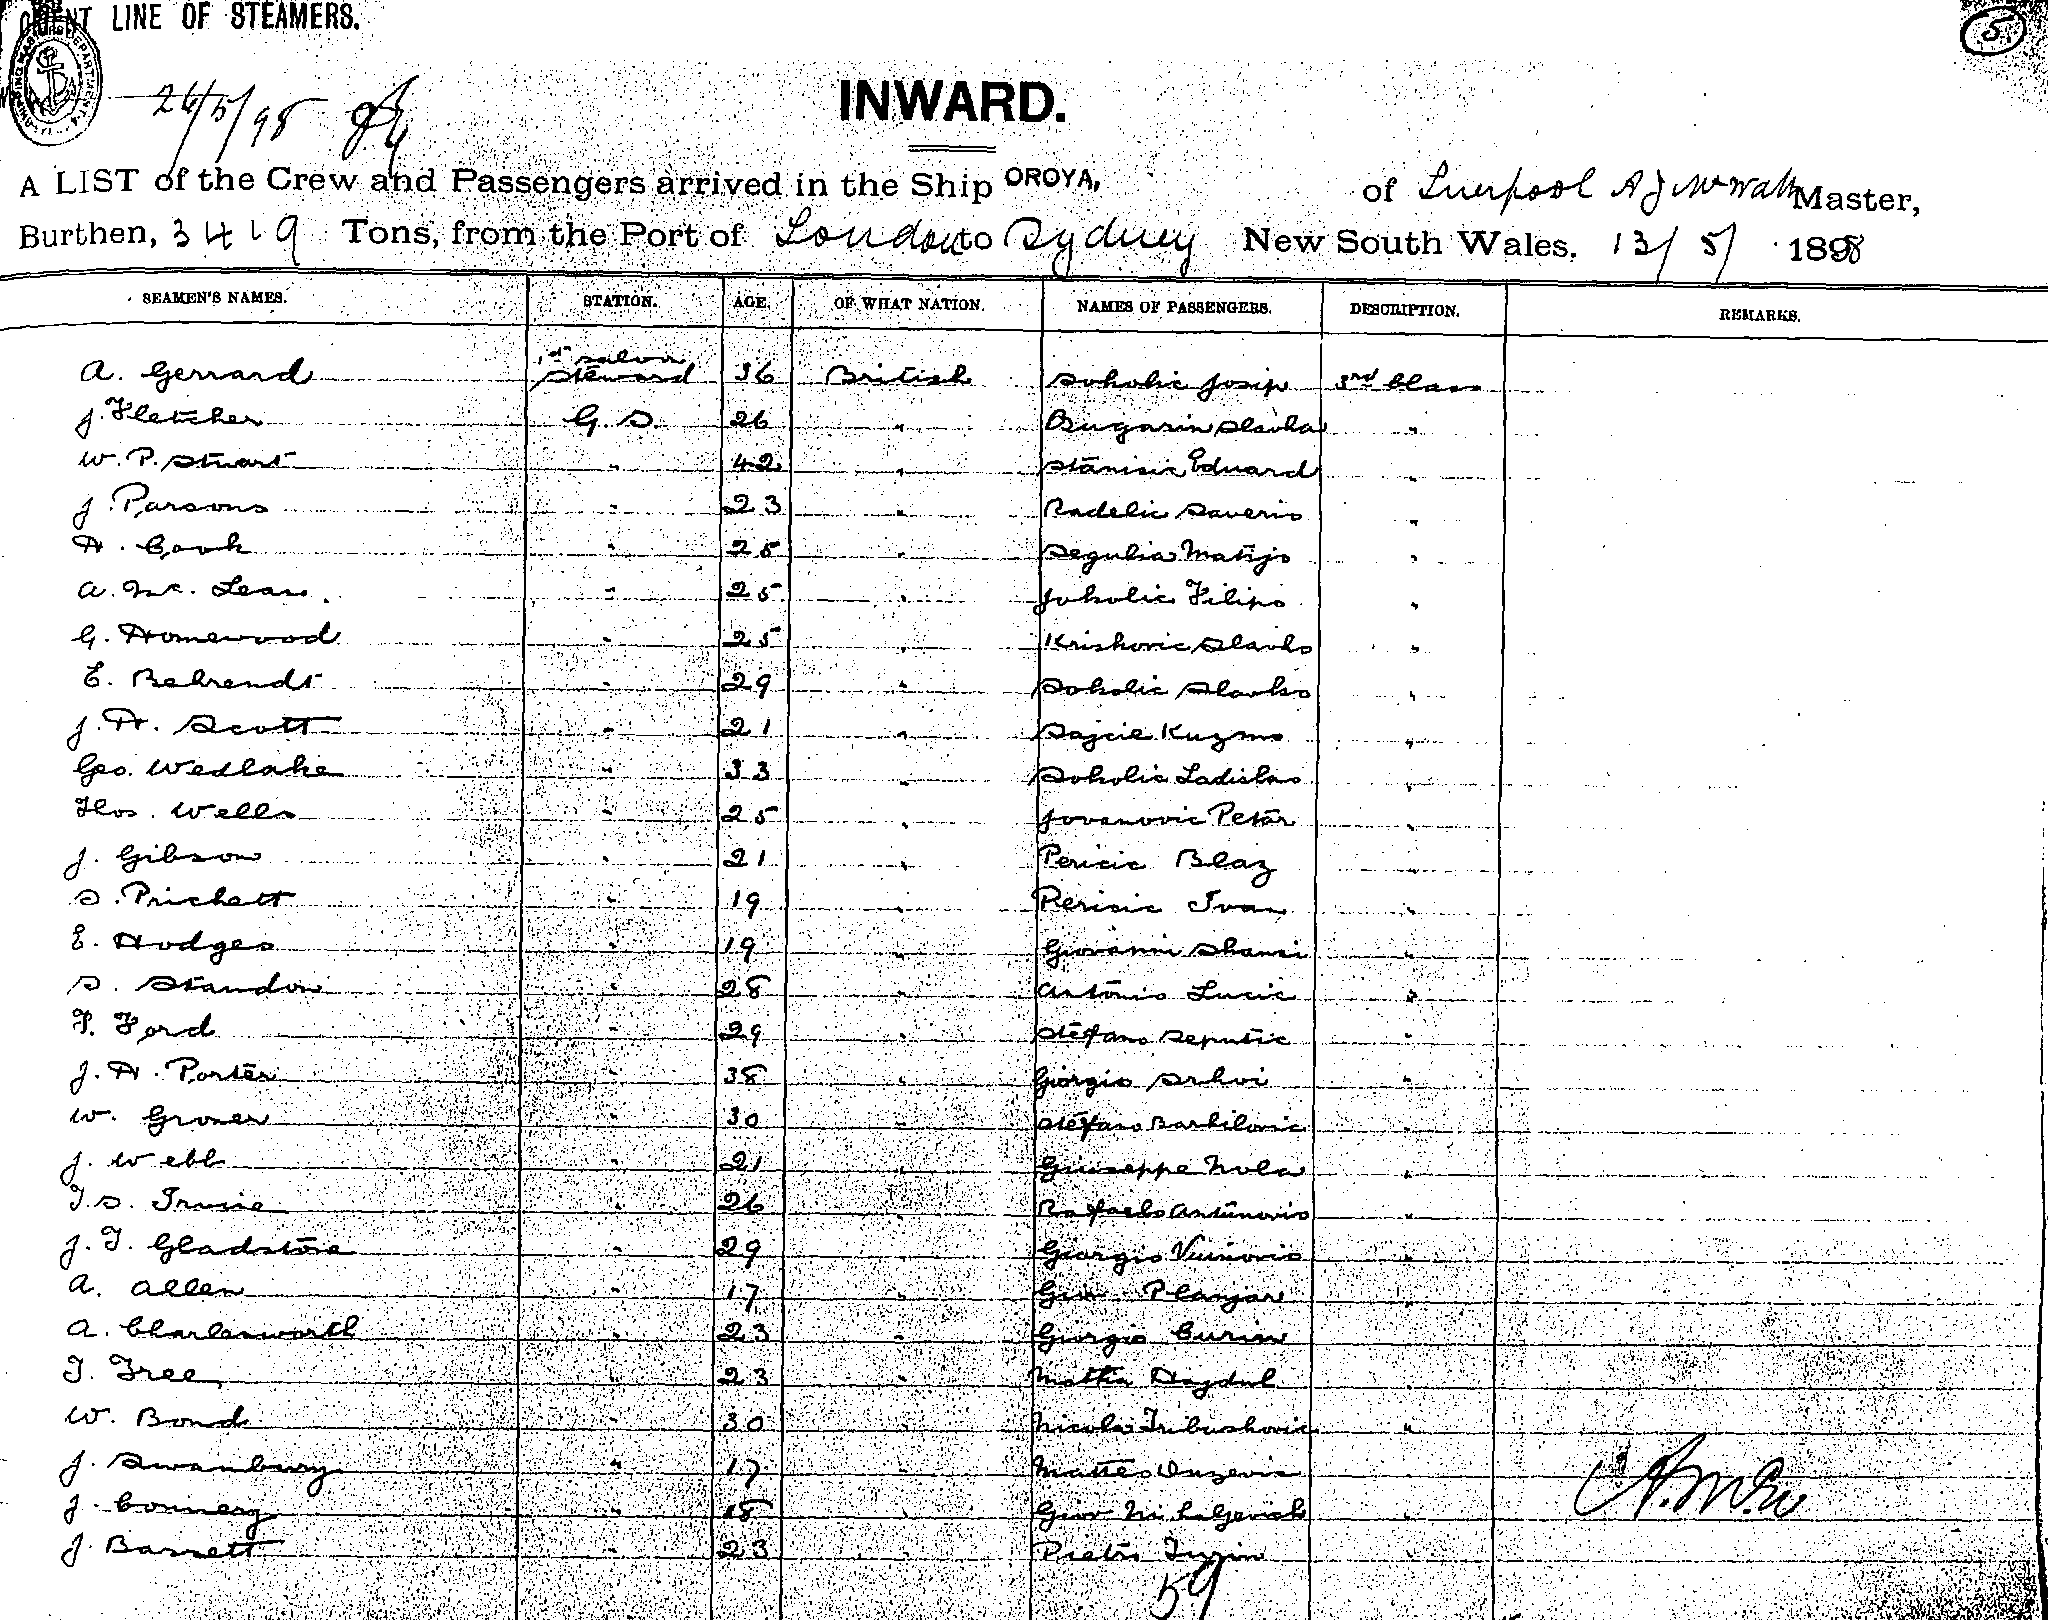 ORIENT LINE OF STEAMERS.
5
26/5/98
INWARD.
A LIST of the Crew and Passengers arrived in the Ship OROYA, of Liverpool A J Master,
Burthen, 3419 Tons, from the Port of London to Sydney New South Wales. 13/5/1898
SEAMEN'S NAMES. STATION. AGE. OF WHAT NATION. NAMES OF PASSENGERS. DESCRIPTION. REMARKS.
A. Gerrard 1st saloon steward 36 British Sokolic Josip 3rd Class
J. Fletcher G. S. 26 " Bugarin Slavka "
W. P. Stuart " 42 " Stanisic Eduard "
J. Parsons " 23 " Radelic Saverio "
H. Cook " 25 " Segulia Matijo "
A. Mc. Lean. " 25 " Jokolic Filipo "
G. Homewood " 25 " Kriskovic Slavko "
E. Behrendt " 29 " Sokolic Slavko "
J. H. Scott " 21 " Sajcic Kuzmo "
Geo. Wedlake " 33 " Sokolic Ladislao "
Thos. Wells " 25 " Jovanovic Petar "
J. Gibson " 21 " Pericic Blaz "
S. Prichett " 19 " Pericic Ivan "
E. Hodges " 19 " Giovanni "
S. Standon " 28 " Antonio Lucic "
F. Ford " 29 " Stefano Seputic "
J. H. Porter " 38 " Giorgio "
W. Grover " 30 " Stefano Barhilovic "
J. Webb " 21 " Giuseppe Nola "
T. S. Irvine " 26 " Rafaelo Antunovio "
J. T. Gladstone " 29 " Giorgio "
A. Allen " 17 " Giov. Planjar "
A. Charlesworth " 23 " Giorgio Curin "
T. Free " 23 " Mattia "
W. Bond " 30 " Nicola Tribushovic "
J. Swanbury " 17 " Matteo "
J. Connery " 18 " Giov "
J. Bassett " 23 " Pietro "
59